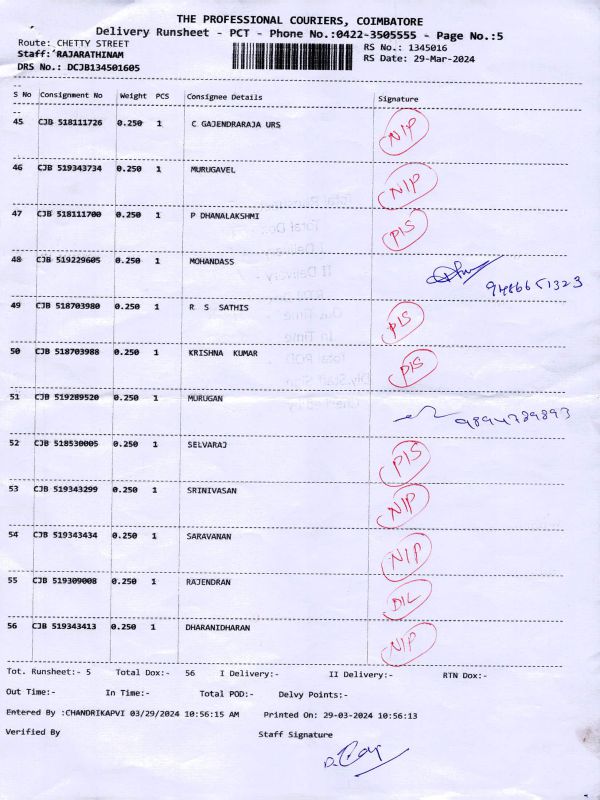 THE PROFESSIONAL COURIERS, COIMBATORE
Delivery Runsheet - PCT - Phone No.:0422-3505555 - Page No.:5
Route: CHETTY STREET RS No.: 1345016
Staff: RAJARATHINAM RS Date: 29-Mar-2024
DRS No.: DCJB134501605
S No Consignment No Weight PCS Consignee Details Signature
45 CJB 518111726 0.250 1 C GAJENDRARAJA URS NIP
46 CJB 519343734 0.250 1 MURUGAVEL NIP
47 CJB 518111700 0.250 1 P DHANALAKSHMI PIS
48 CJB 519229605 0.250 1 MOHANDASS 9486651323
49 CJB 518703980 0.250 1 R S SATHIS PIS
50 CJB 518703988 0.250 1 KRISHNA KUMAR PIS
51 CJB 519289520 0.250 1 MURUGAN 9894789893
52 CJB 518530005 0.250 1 SELVARAJ PIS
53 CJB 519343299 0.250 1 SRINIVASAN NIP
54 CJB 519343434 0.250 1 SARAVANAN NIP
55 CJB 519309008 0.250 1 RAJENDRAN DIL
56 CJB 519343413 0.250 1 DHARANIDHARAN NIP
Tot. Runsheet:- 5 Total Dox:- 56 I Delivery:- II Delivery:- RTN Dox:-
Out Time:- In Time:- Total POD:- Delvy Points:-
Entered By :CHANDRIKAPVI 03/29/2024 10:56:15 AM Printed On: 29-03-2024 10:56:13
Verified By Staff Signature